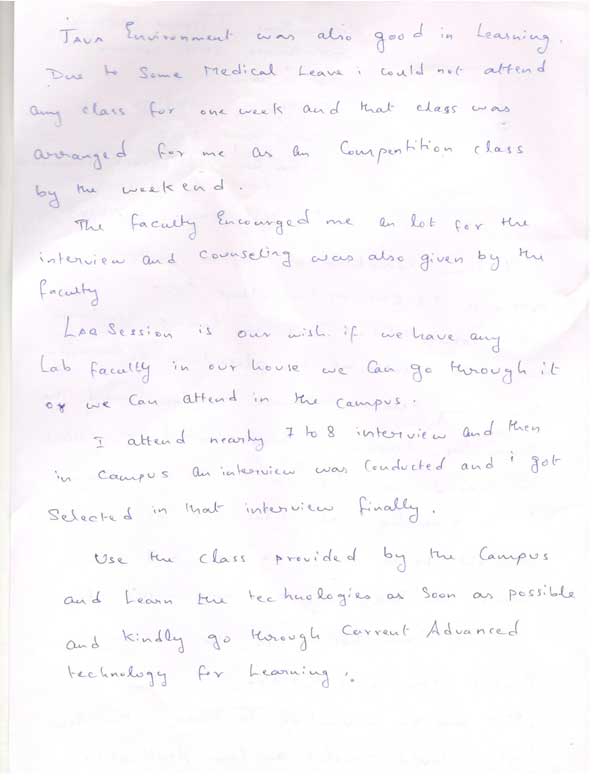 Java Environment was also good in Learning.
Due to Some Medical Leave i could not attend
any class for one week and that class was
arranged for me as an Compentition class
by the weekend.
The faculty Encourged me an lot for the
interview and counseling was also given by the
faculty
Lab Session is our wish if we have any
Lab faculty in our house we Can go through it
or we Can attend in the campus.
I attend nearly 7 to 8 interview and then
in campus an interview was Conducted and i got
Selected in that interview finally.
Use the class provided by the Campus
and Learn the technologies as Soon as possible
and kindly go through Current Advanced
technology for Learning.